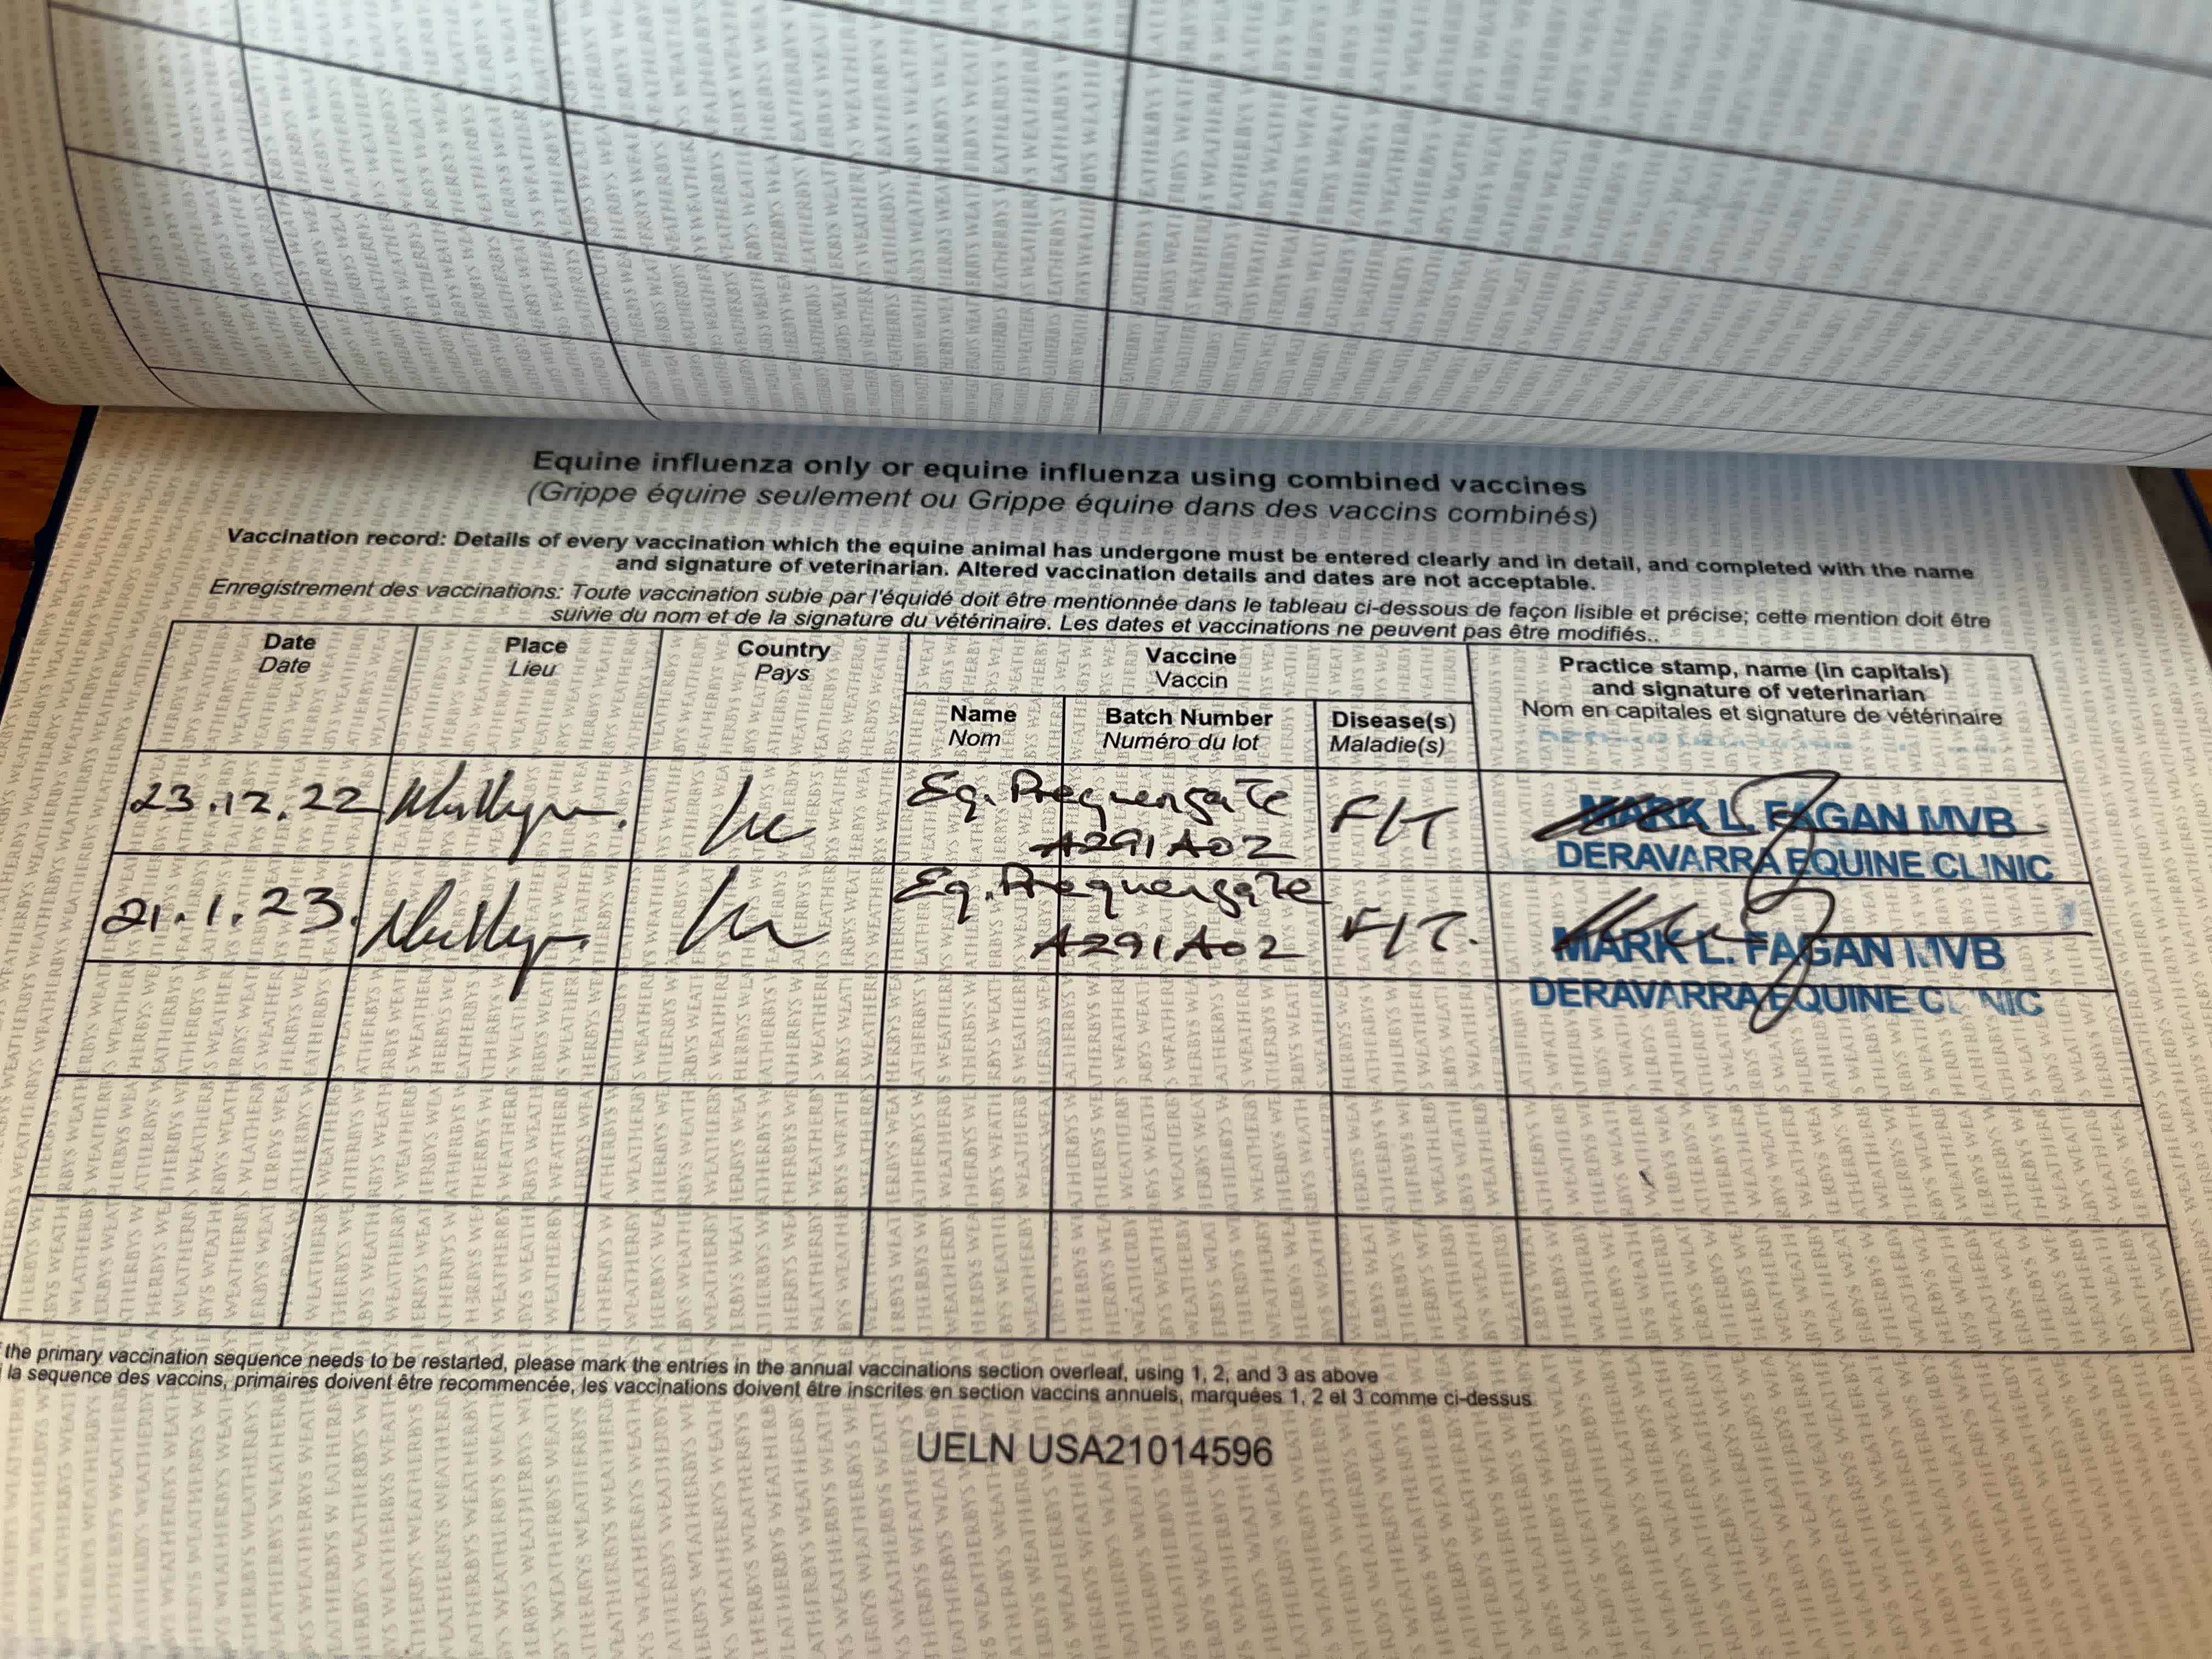 Equine influenza only or equine influenza using combined vaccines
(Grippe équine seulement ou Grippe équine dans des vaccins combinés)
Vaccination record: Details of every vaccination which the equine animal has undergone must be entered clearly and in detail, and completed with the name
and signature of veterinarian. Altered vaccination details and dates are not acceptable.
Enregistrement des vaccinations: Toute vaccination subie par l'équidé doit être mentionnée dans le tableau ci-dessous de façon lisible et précise; cette mention doit être
suivie du nom et de la signature du vétérinaire. Les dates et vaccinations ne peuvent pas être modifiés..
Date
Date
Place
Lieu
Country
Pays
Vaccine
Vaccin
Name
Nom
Batch Number
Numéro du lot
Disease(s)
Maladie(s)
Practice stamp, name (in capitals)
and signature of veterinarian
Nom en capitales et signature de vétérinaire
23.12.22
Eq. Prequenza Te
A291A02
F/T
MARK L. FAGAN MVB
DERAVARRA EQUINE CLINIC
21.1.23.
Eq. Prequenza Te
A291A02
F/T.
MARK L. FAGAN MVB
DERAVARRA EQUINE CLINIC
the primary vaccination sequence needs to be restarted, please mark the entries in the annual vaccinations section overleaf, using 1, 2, and 3 as above
la sequence des vaccins, primaires doivent être recommencée, les vaccinations doivent être inscrites en section vaccins annuels, marquées 1, 2 et 3 comme ci-dessus
UELN USA21014596